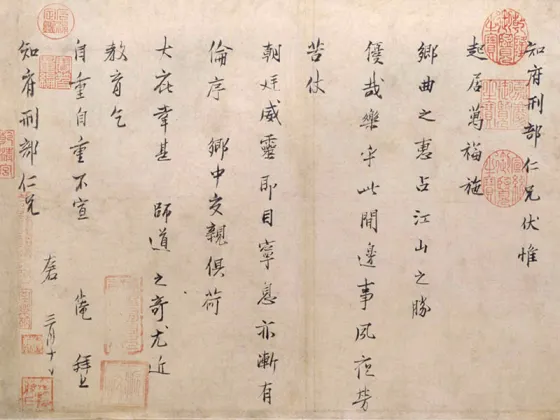 知府刑部仁兄伏惟
起居萬福施
鄉曲之惠占江山之勝
優哉樂乎此間邊事夙夜勞
苦仗
朝廷威靈即目寧息亦漸有
倫序 鄉中交親俱荷
大庇幸甚 師道之奇尤近
教育乞
自重自重不宣 淹 拜上
知府刑部仁兄 左右 三月十日